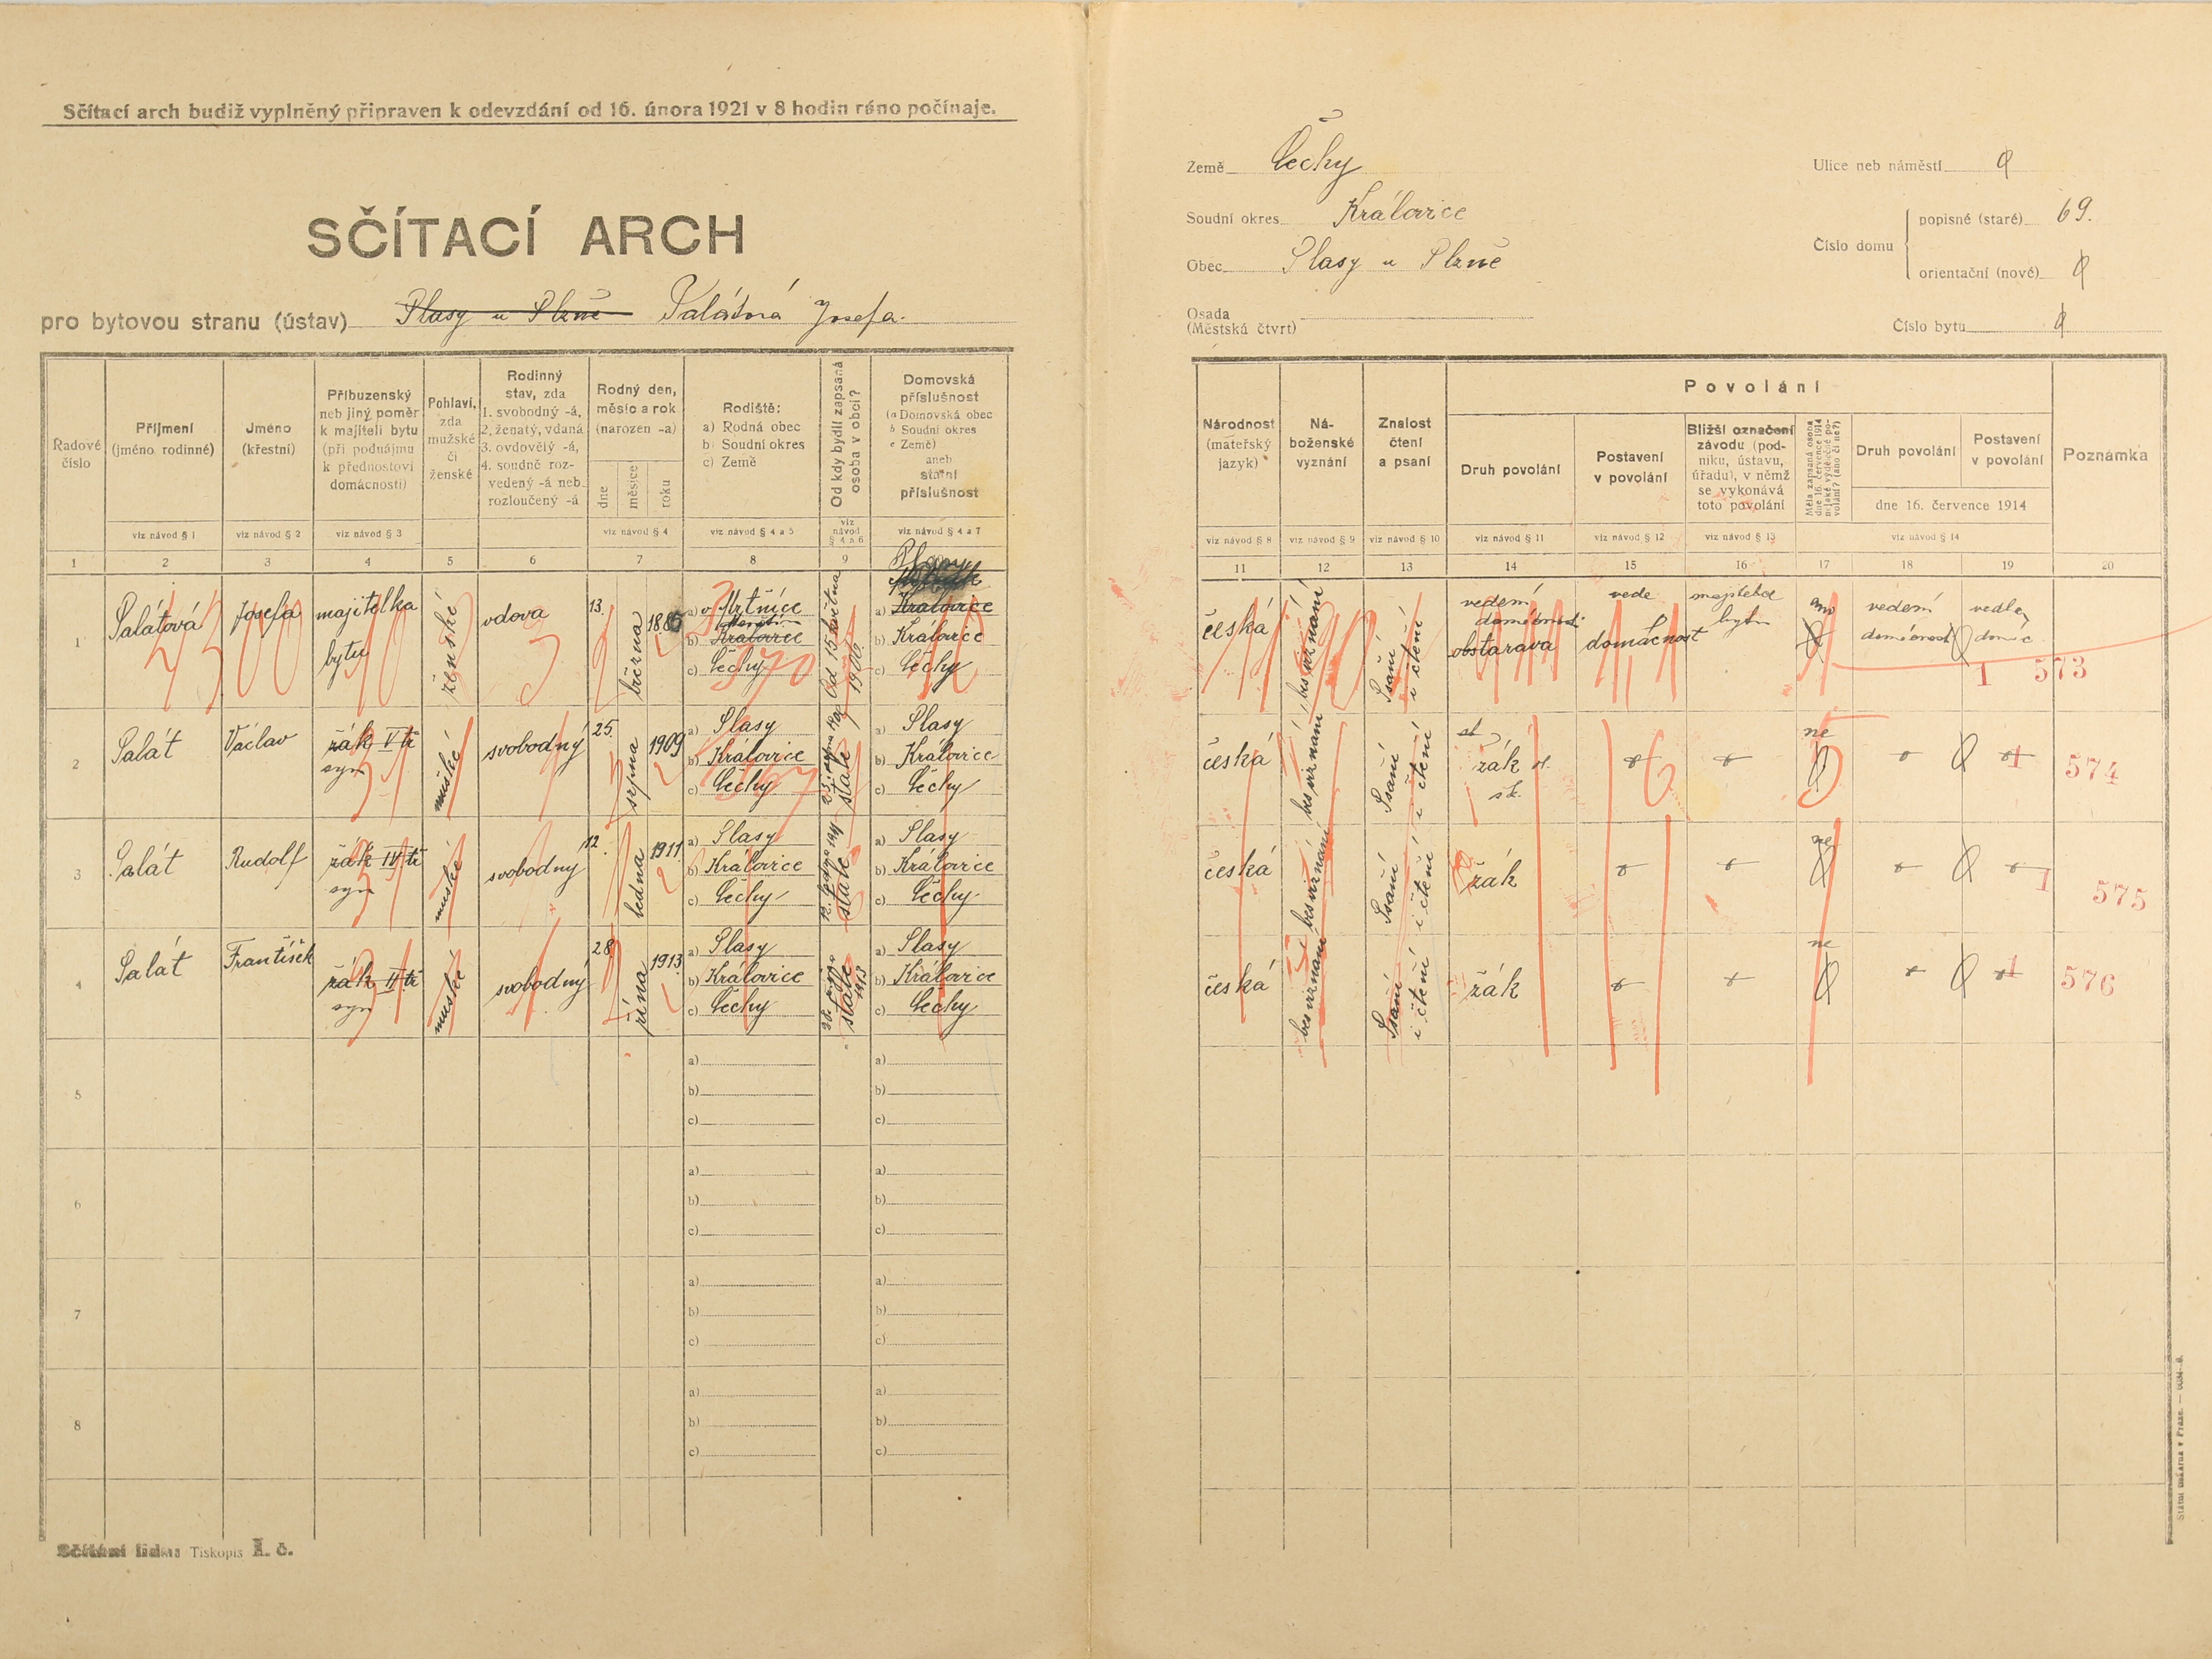 Sčítací arch budiž vyplněný připraven k odevzdání od 16. února 1921 v 8 hodin ráno počínaje.
SČÍTACÍ ARCH
pro bytovou stranu (ústav) Plasy u Plzně Salátová Josefa.
Země Čechy
Soudní okres Kralovice
Obec Plasy u Plzně
Osada
(Městská čtvrt)
Ulice neb náměstí
Číslo domu
popisné (staré) 69.
orientační (nové)
Číslo bytu
Řadové číslo
Příjmení (jméno rodinné)
viz návod § 1
Jméno (křestní)
viz návod § 2
Příbuzenský neb jiný poměr k majiteli bytu (při podnájmu k přednostovi domácnosti)
viz návod § 3
Pohlaví, zda mužské či ženské
Rodinný stav, zda
1. svobodný -á,
2. ženatý, vdaná
3. ovdovělý -á,
4. soudně roz-
vedený -á neb
rozloučený -á
Rodný den, měsíc a rok (narozen -a)
dne
měsíce
roku
viz návod § 4
Rodiště:
a) Rodná obec
b) Soudní okres
c) Země
viz návod § 4 a 5
Od kdy bydlí zapsaná osoba v obci?
viz návod § 4 a 6
Domovská příslušnost
(a Domovská obec
b Soudní okres
c Země)
aneb
státní
příslušnost
viz návod § 4 a 7
Národnost (mateřský jazyk)
viz návod § 8
Ná-
boženské
vyznání
viz návod § 9
Znalost čtení a psaní
viz návod § 10
Povolání
Druh povolání
viz návod § 11
Postavení v povolání
viz návod § 12
Bližší označení závodu (pod-
niku, ústavu, úřadu), v němž se vykonává toto povolání
viz návod § 13
Měla zapsaná osoba dne 16. července 1914 nějaké výdělečné po-
volání? (ano či ne?)
Druh povolání
Postavení v povolání
dne 16. července 1914
viz návod § 14
Poznámka
1 2 3 4 5 6 7 8 9 11 12 13 14 15 16 17 18 19 20
1 Salátová Josefa majitelka bytu ženské vdova 13. března 1885
a) Mrtnice
b) Kralovice
c) Čechy
Od 15 května 1906
Plasy
a) Kralovice
b) Kralovice
c) Čechy
česká bez vyznání psaní i čtení
vedení domácnosti
obstarává
vede domácnost
majitelka bytu
ano
vedení domácnosti
1 573
2 Salát Václav žák V tř syn mužské svobodný 25. srpna 1909
a) Plasy
b) Kralovice
c) Čechy
25. srpna 1909 stále
a) Plasy
b) Kralovice
c) Čechy
česká bez vyznání psaní i čtení žák ne 1 574
3 Salát Rudolf žák IV tř syn mužské svobodný 12. ledna 1911
a) Plasy
b) Kralovice
c) Čechy
12. ledna 1911 stále
a) Plasy
b) Kralovice
c) Čechy
česká bez vyznání psaní i čtení žák ne 1 575
4 Salát František žák II tř syn mužské svobodný 28. října 1913
a) Plasy
b) Kralovice
c) Čechy
28. října 1913 stále
a) Plasy
b) Kralovice
c) Čechy
česká bez vyznání psaní i čtení žák ne 1 576
5 a) b) c) a) b) c)
6 a) b) c) a) b) c)
7 a) b) c) a) b) c)
8 a) b) c) a) b) c)
Sčítání lidu: Tiskopis I. č.